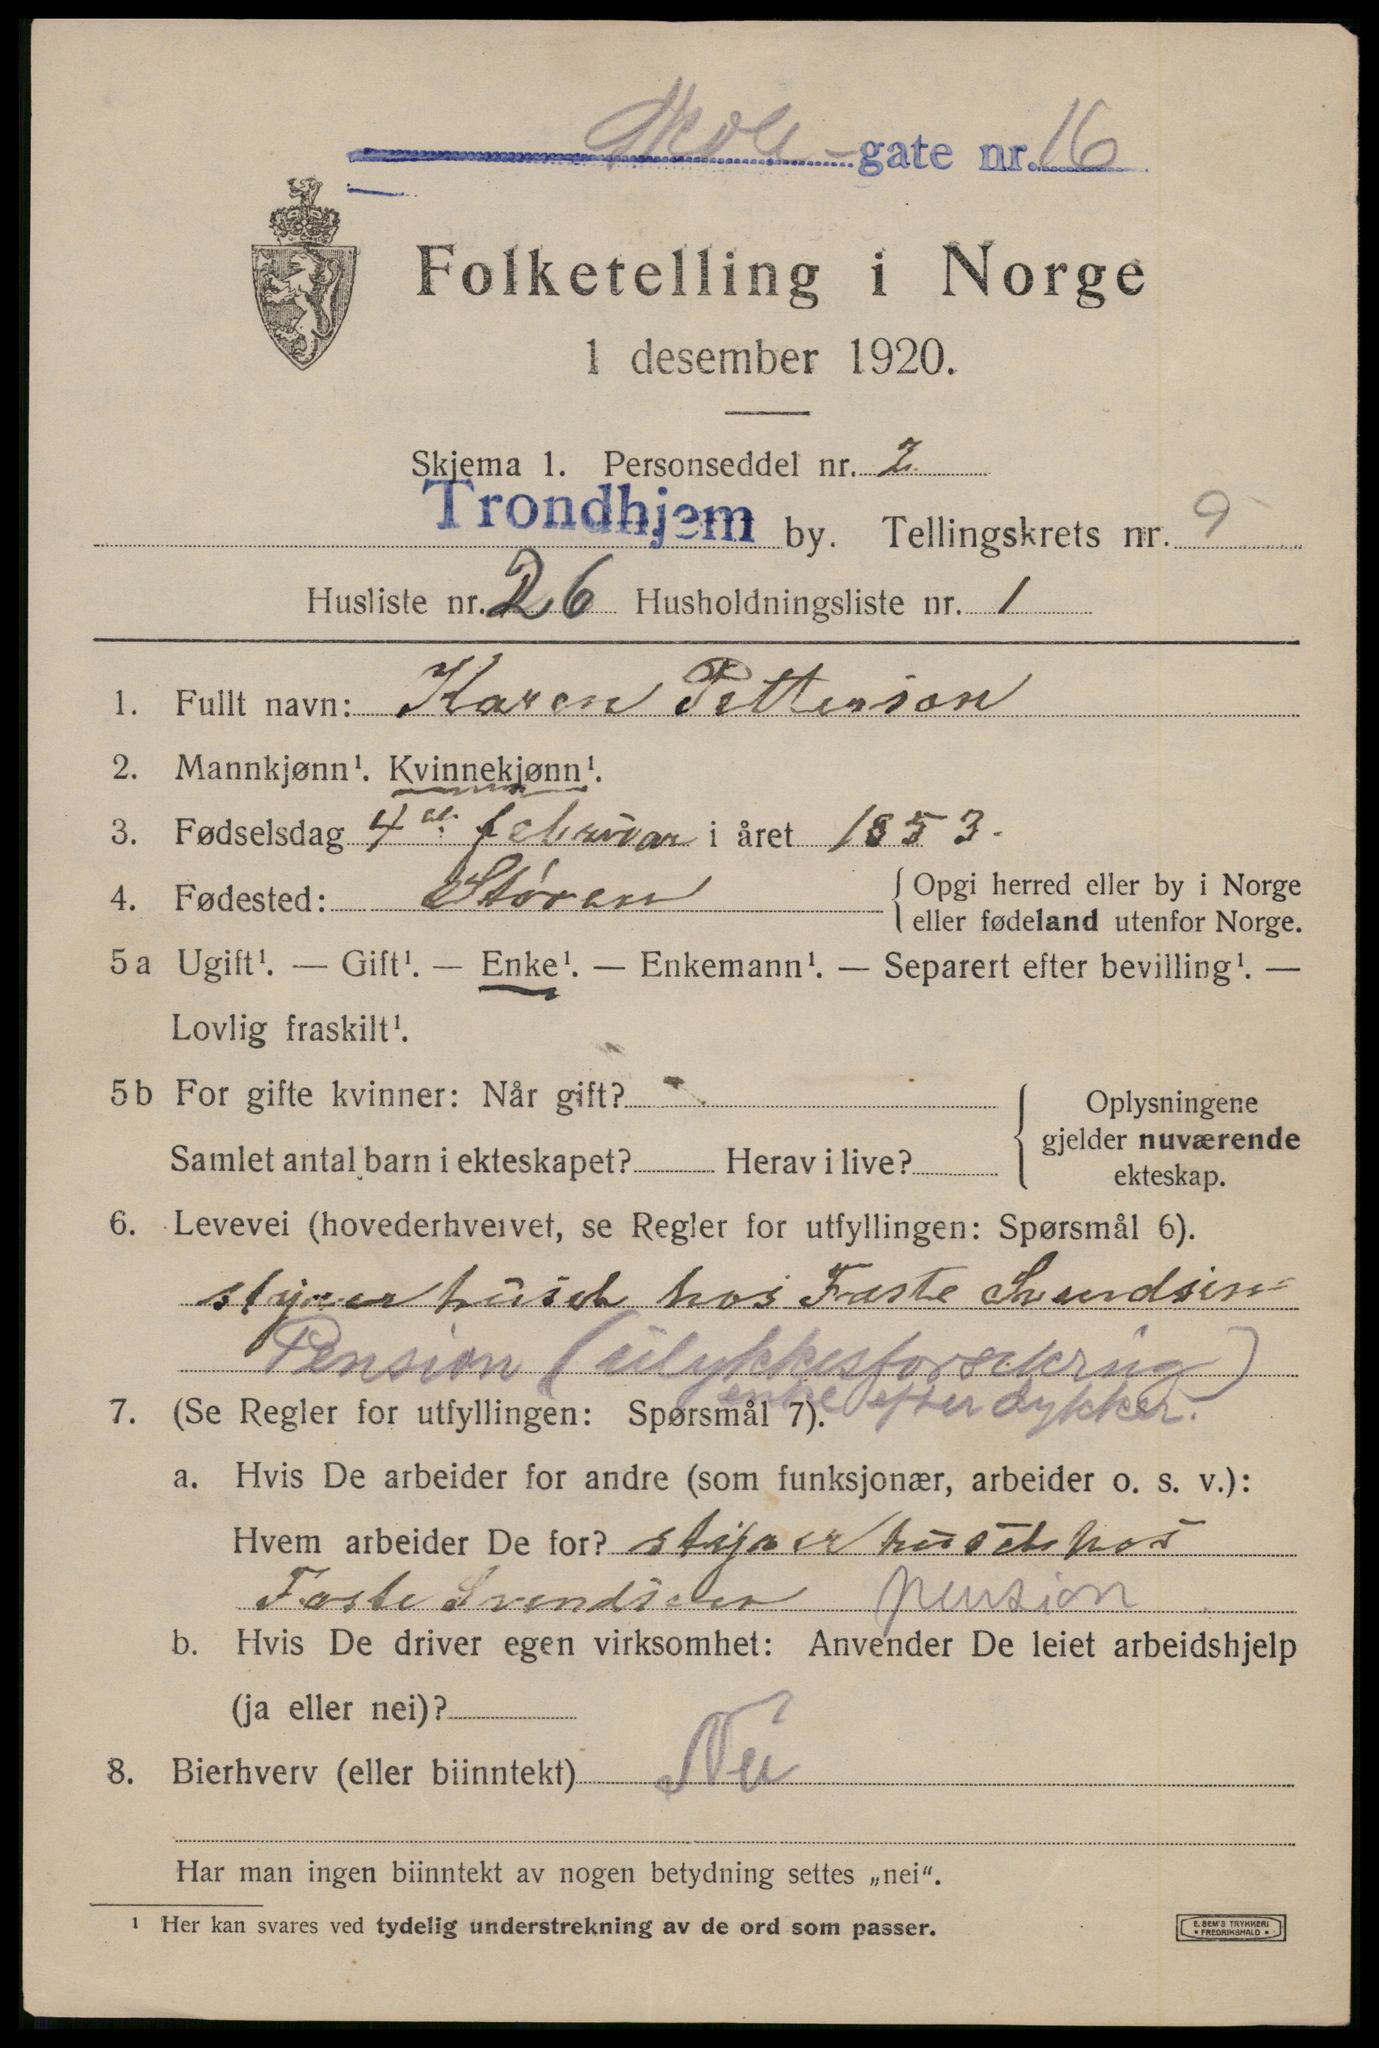 Skole-gate nr. 16
Folketelling i Norge
1 desember 1920.
Skjema 1. Personseddel nr. 2
Trondhjem by. Tellingskrets nr. 9
Husliste nr. 26 Husholdningsliste nr. 1
1. Fullt navn: Karen Petterson
2. Mannkjønn¹. Kvinnekjønn¹.
3. Fødselsdag 4de februar i året 1853.
4. Fødested: Støren { Opgi herred eller by i Norge
eller fødeland utenfor Norge.
5 a Ugift¹. — Gift¹. — Enke¹. — Enkemann¹. — Separert efter bevilling¹. —
Lovlig fraskilt¹.
5 b For gifte kvinner: Når gift?
Samlet antal barn i ekteskapet? Herav i live?
Oplysningene
gjelder nuværende
ekteskap.
6. Levevei (hovederhvervet, se Regler for utfyllingen: Spørsmål 6).
styrer huset hos Faste Svendsen
Pension (ulykkesforsekring)
enke efter dykker.
7. (Se Regler for utfyllingen: Spørsmål 7).
a. Hvis De arbeider for andre (som funksjonær, arbeider o. s. v.):
Hvem arbeider De for? styrer huset hos
Faste Svendsen pension
b. Hvis De driver egen virksomhet: Anvender De leiet arbeidshjelp
(ja eller nei)?
8. Bierhverv (eller biinntekt) Nei
Har man ingen biinntekt av nogen betydning settes „nei“.
¹ Her kan svares ved tydelig understrekning av de ord som passer.
E. SEM'S TRYKKERI
FREDRIKSHALD